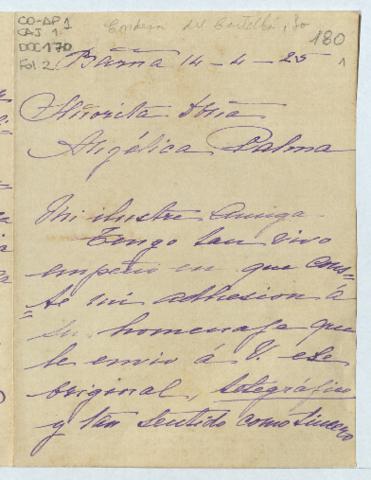 CO-AP1
CAJ 1
DOC 170
Fol 2
Condesa del Castellá, 30
180
1
Barna 14-4-25
Señorita Doña
Angélica Palma
Mi ilustre Amiga
Tengo tan vivo
empeño en que cons=
=te mi adhesion á
su homenaje que
le envio á V. ese
original, telegráfico
y tan sentido como sincero